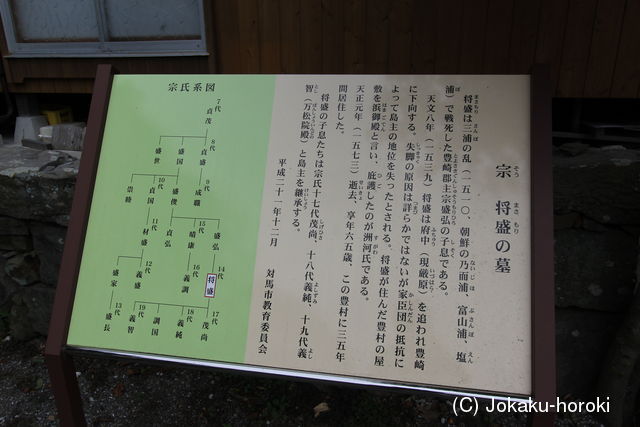 宗 将盛の墓
将盛は三浦の乱(一五一〇、朝鮮の乃而浦、富山浦、塩
浦)で戦死した豊崎郡主宗盛弘の子息である。
天文八年(一五三九)将盛は府中(現厳原)を追われ豊崎
に下向する。失脚の原因は詳らかではないが家臣団の抵抗に
よって島主の地位を失ったとされる。将盛が住んだ豊村の屋
敷を浜御殿と言い、庇護したのが洲河氏である。
天正元年(一五七三)逝去、享年六五歳、この豊村に三五年
間居住した。
将盛の子息たちは宗氏十七代茂尚、十八代義純、十九代義
智(万松院殿)と島主を継承する。
平成二十一年十二月
対馬市教育委員会
宗氏系図
7代
貞茂
8代
貞盛
盛国
盛世
9代
成職
盛俊
10代
貞国
崇睦
盛弘
15代
晴康
貞弘
11代
材盛
14代
将盛
16代
義調
12代
義盛
盛家
17代
茂尚
18代
義純
調国
19代
義智
13代
盛長
(C) Jokaku-horoki